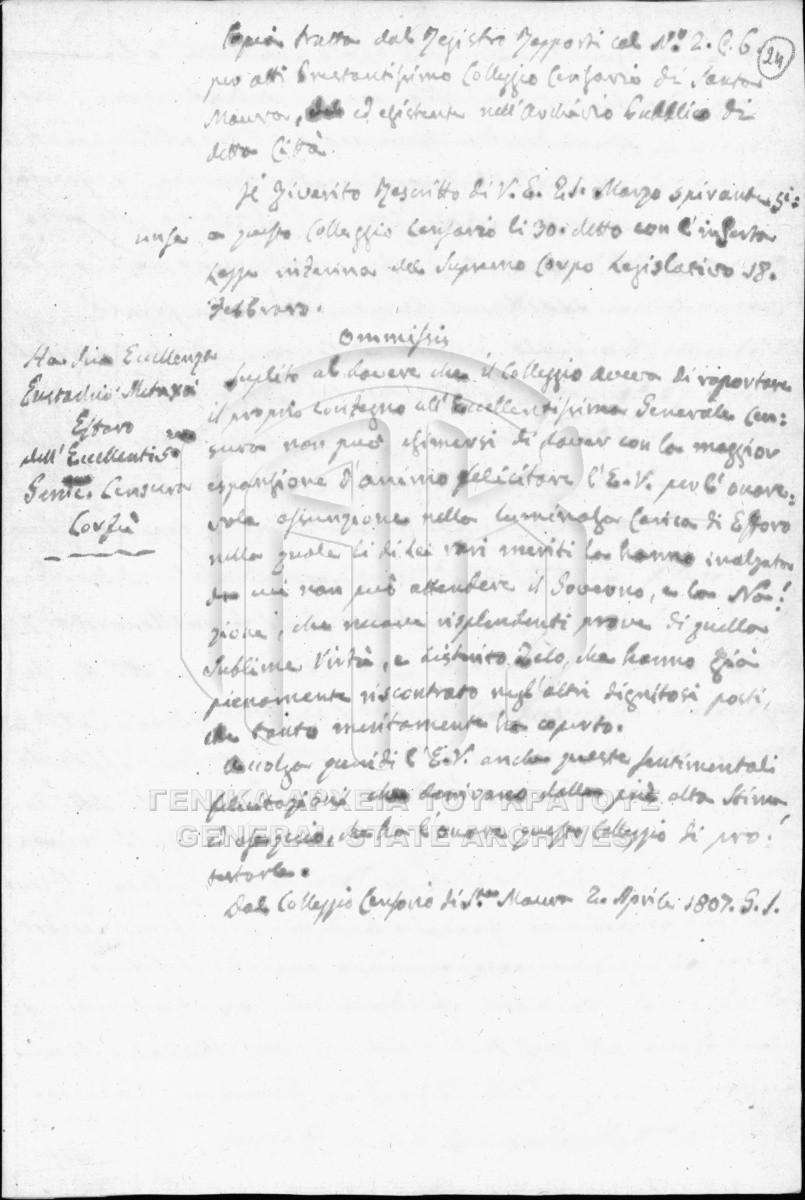 Copia tratta dal Registro Rapporti col Nº 2. C. C.
24
per atti Prestantissimo Colleggio Censorio di Santa
Maura, ed esistente nell'Archivio Pubblico di
detta Città.
Il Riverito Rescritto di V. E. 21. Marzo spirante gi:
unse a questo Colleggio Censorio li 30. detto con l'inserta
Legge interina del Supremo Corpo Legislativo 18.
Febbraro.
Ommissis
A Sua Eccellenza
Eustachio Metaxà
Efforo
dell'Eccellentis.ma
Genle. Censura
Corfù
Suplito al dovere che il Colleggio aveva di riportare
il proprio contegno all'Eccellentissima Generale Cen:
sura non può esimersi di dover con la maggior
espansione d'animo felicitare l'E. V. per l'onore:
vole assunzione nella luminosa Carica di Efforo
nella quale li di Lei rari meriti la hanno inalzata
da cui non può attendere il Governo, e la Na:
zione, che nuove risplendenti prove di quella
sublime Virtù, e distinto Zelo, che hanno già
pienamente riscontrato negl'altri dignitosi posti,
che tanto meritamente ha coperto.
Accolga quindi l'E. V. anche queste sentimentali
felicitazioni che derivano dalla più alta stima,
che ha l'onore questo Colleggio di pro:
testarle.
Dal Colleggio Censorio di Sta Maura 2. Aprile 1807. S. S.
ΓΕΝΙΚΑ ΑΡΧΕΙΑ ΤΟΥ ΚΡΑΤΟΥΣ
GENERAL STATE ARCHIVES